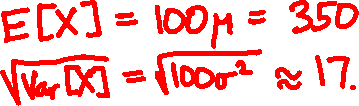 E[X] = 100μ = 350
√Var[X] = √100σ² ≈ 17.